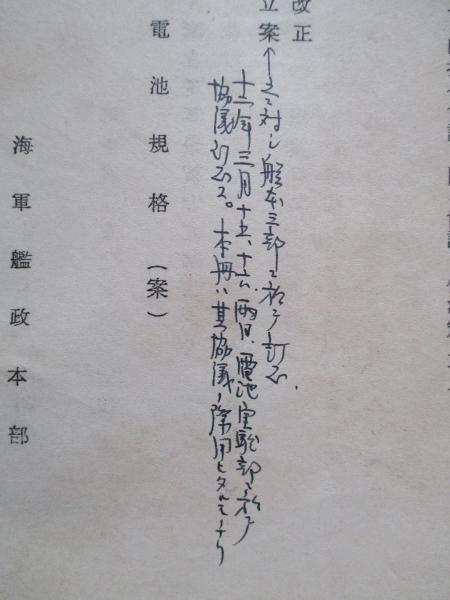 改正
立案←之ニ対シ艦本三部ニ於テ訂正、
十二年三月十五、十六、両日、電池実験部ニ於テ
協議訂正ス。本冊ハ其協議ノ際用ヒタルモノナリ
電池規格（案）
海軍艦政本部